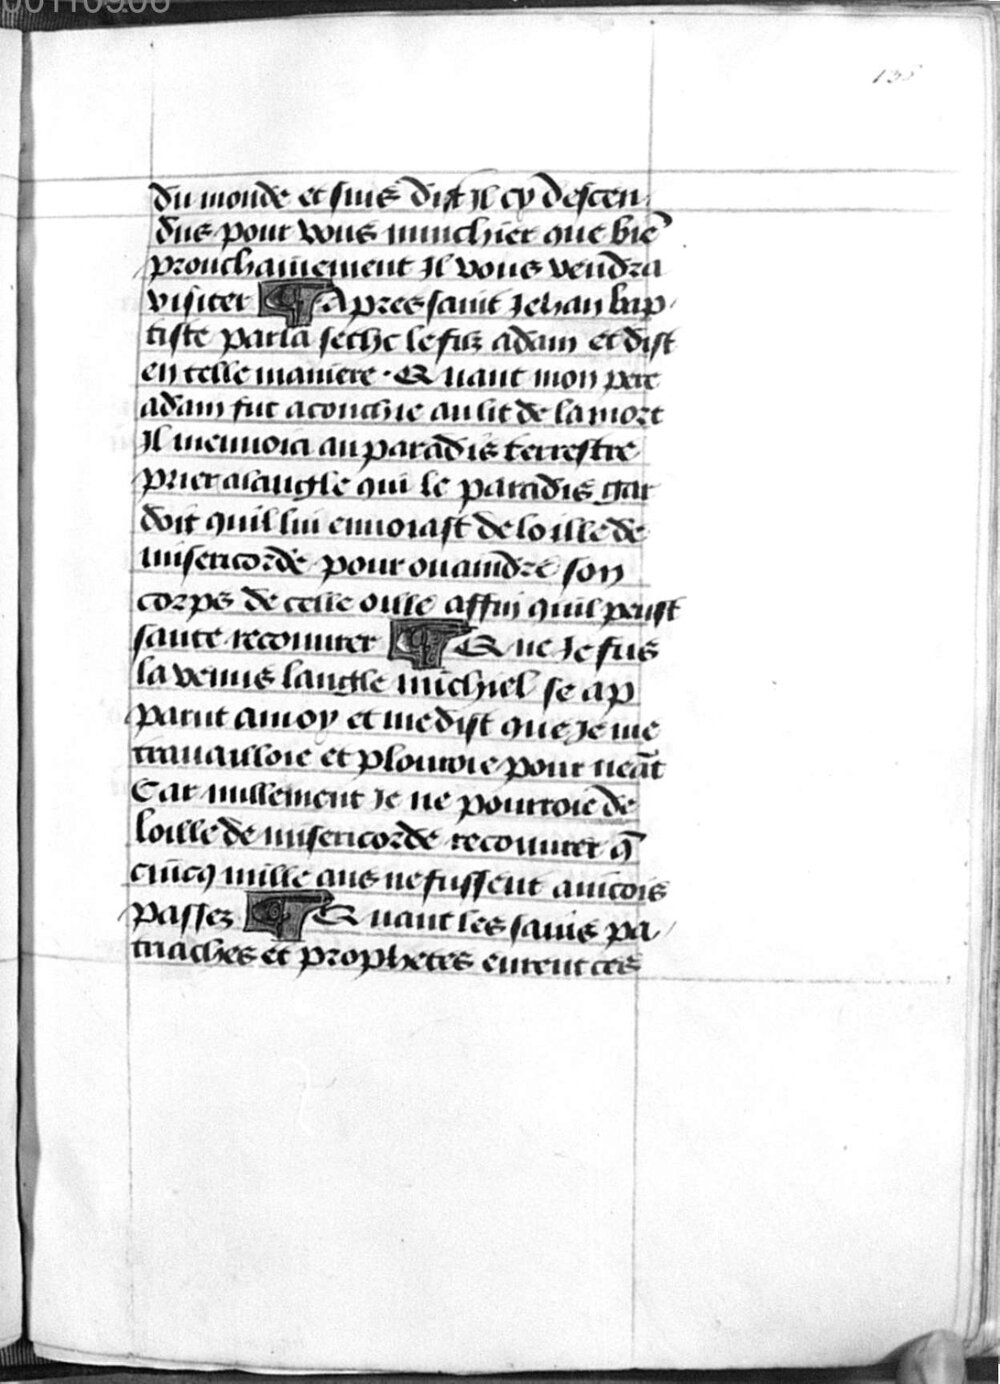 00110306
135
du monde et suis dist il cy descen
dus pour vous nunchier que biē
prouchainement Il vous vendra
visiter ¶ Apres saint Jehan bap
tiste parla seche le filz adam et dist
en telle maniere · Quant mon pere
adam fut acouchie au lit de la mort
Il menuoia au paradis terrestre
prier alangle qui le paradis gar
doit quil lui enuoiast de loille de
misericorde pour ouaindre son
corps de celle oille affin quil peust
sante recouurer ¶ Que Je fus
la venus langle michiel se ap
parut amoy et me dist que Je me
trauailloie et plouroie pour neāt
Car nullement Je ne pourroie de
loille de misericorde recouurer q̄
cincq mille ans ne fussent aincois
passez ¶ Quant les sains pa
triaches et prophetes eurent ces